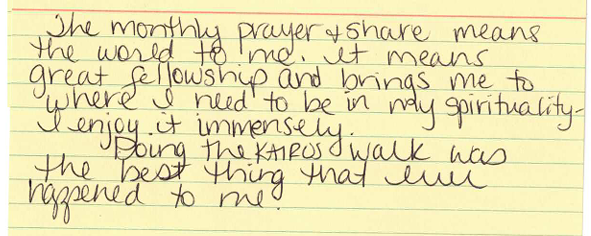 The monthly prayer & share means
the world to me. It means
great fellowship and brings me to
where I need to be in my spirituality-
I enjoy it immensely.
Doing the KAIROS walk was
the best thing that ever
happened to me.